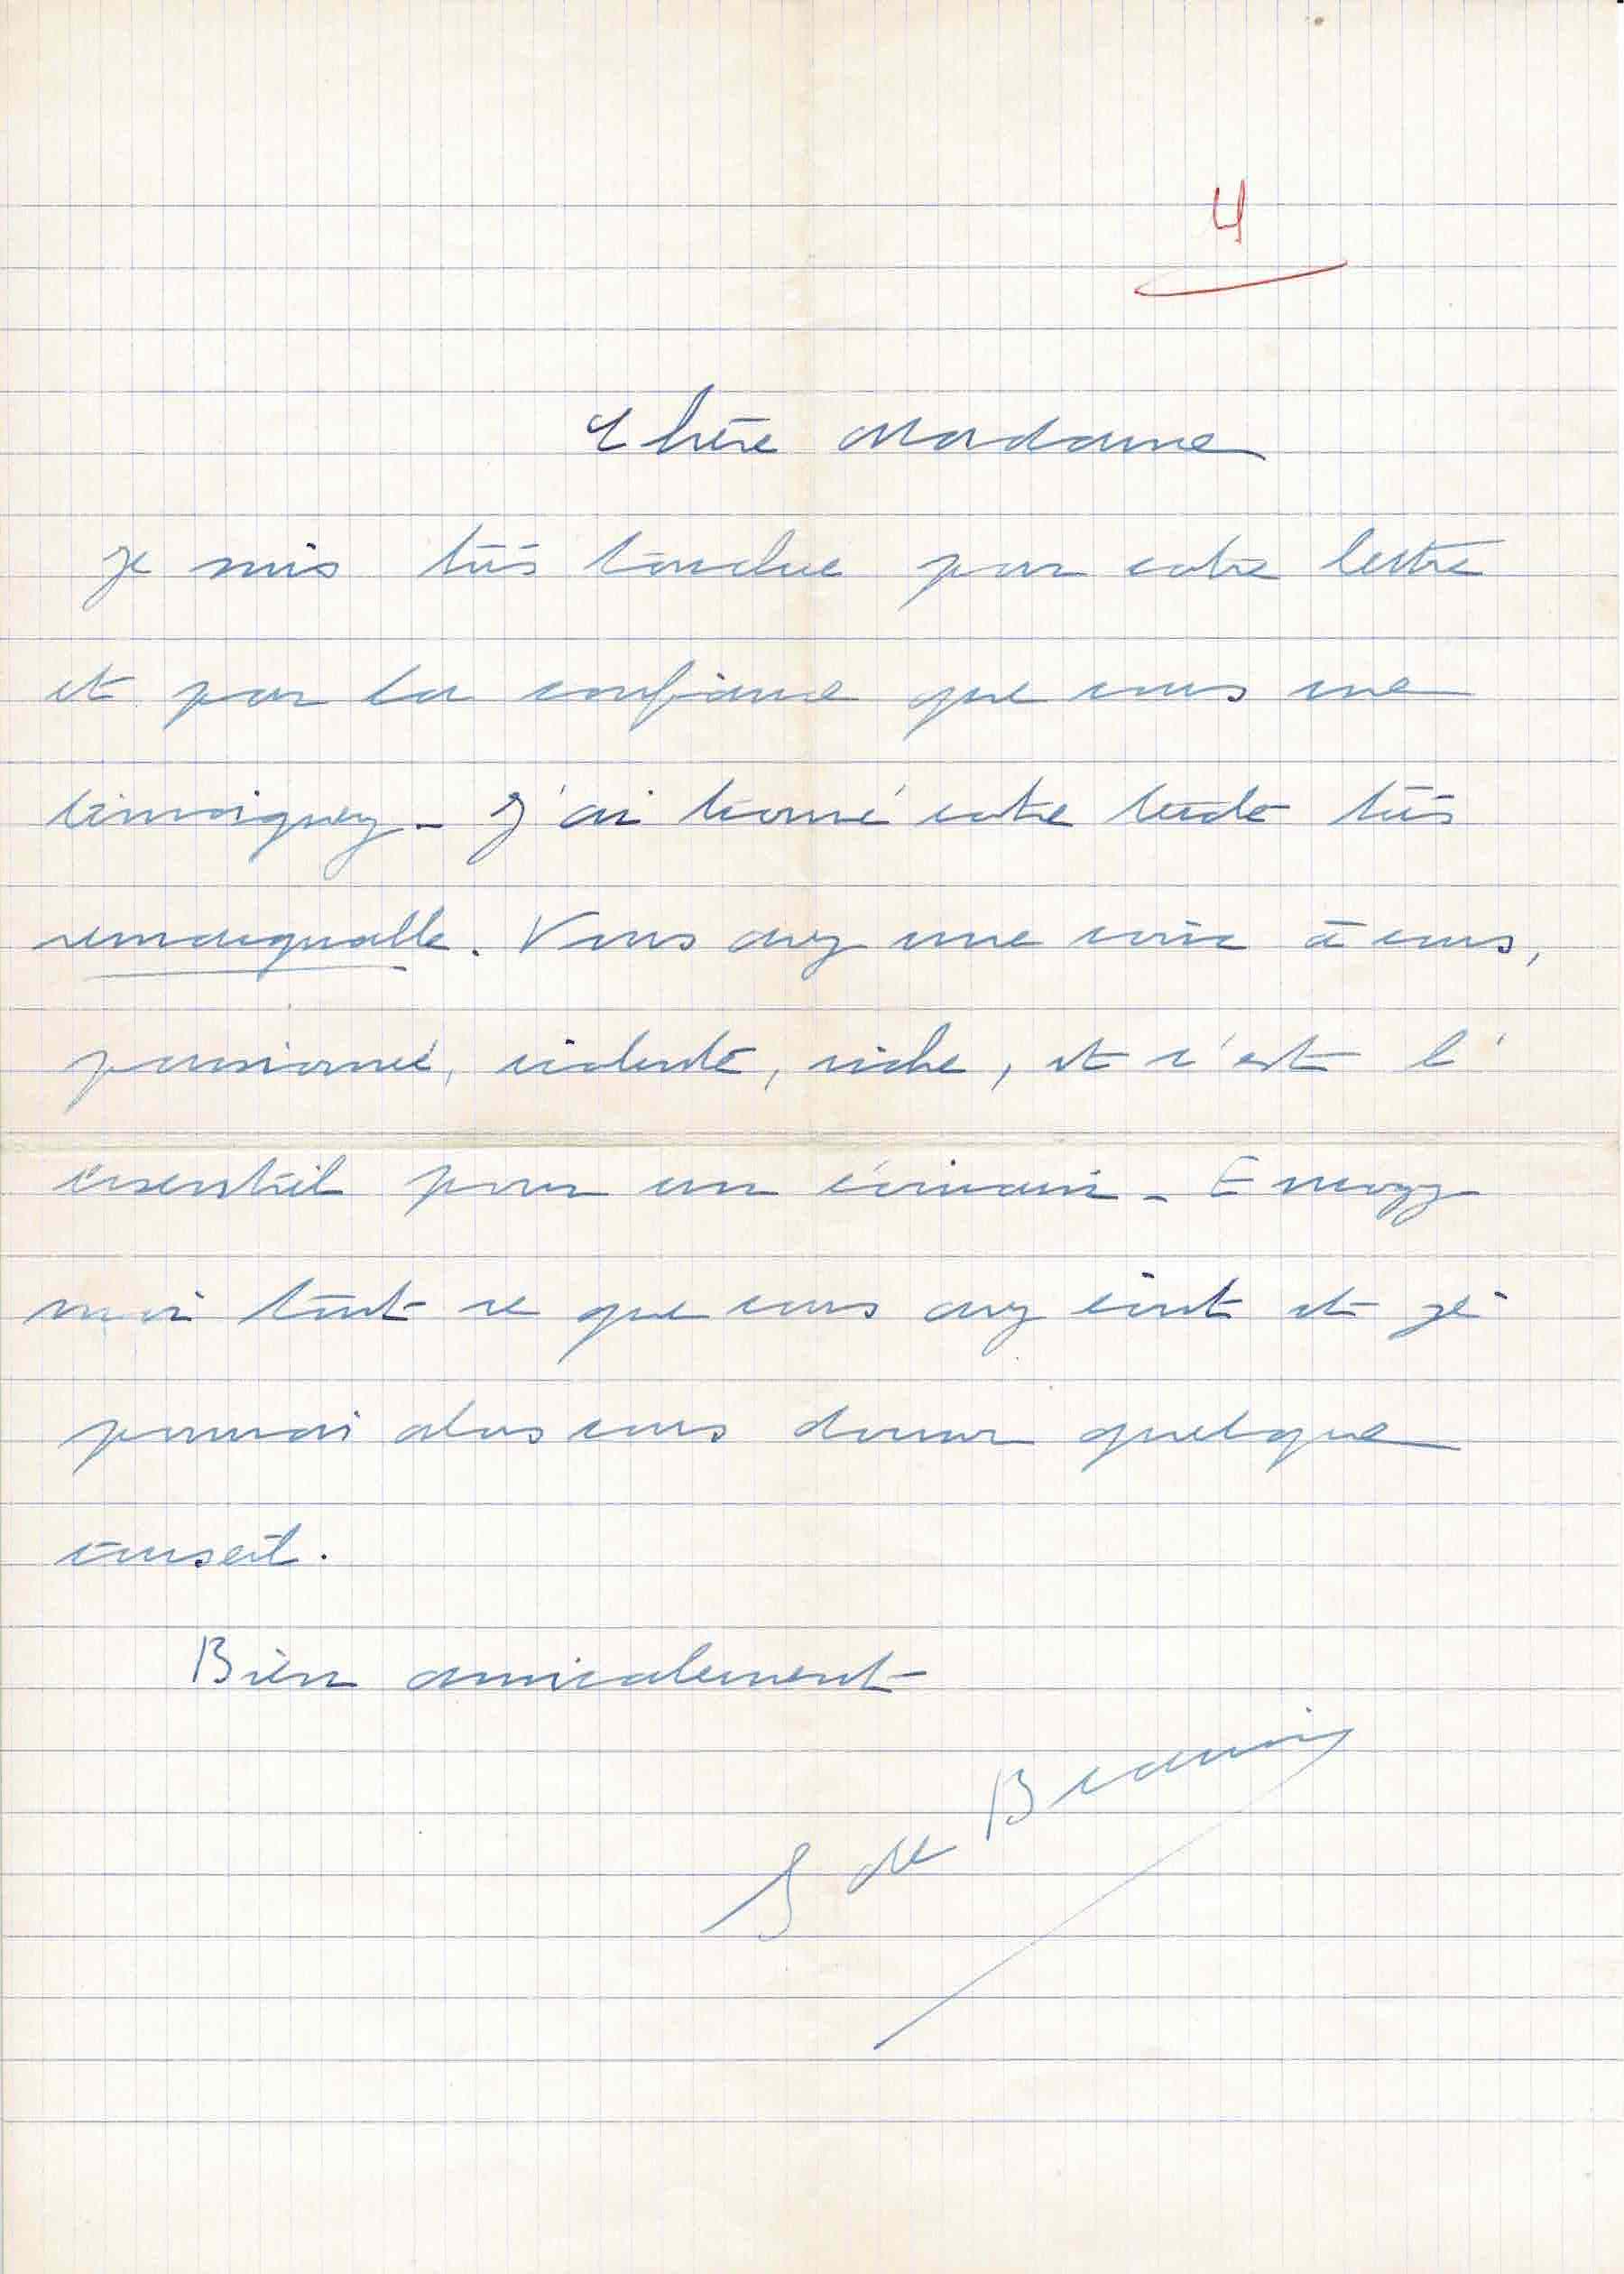 4
Chère Madame
je suis très touchée par votre lettre
et par la confiance que vous me
témoignez - J'ai trouvé votre texte très
remarquable. Vous avez une voix à vous,
passionnée, violente, riche, et c'est l'
essentiel pour un écrivain - Envoyez
moi tout ce que vous avez écrit et je
pourrai alors vous donner quelque
conseil.
Bien amicalement
S de Beauvoir